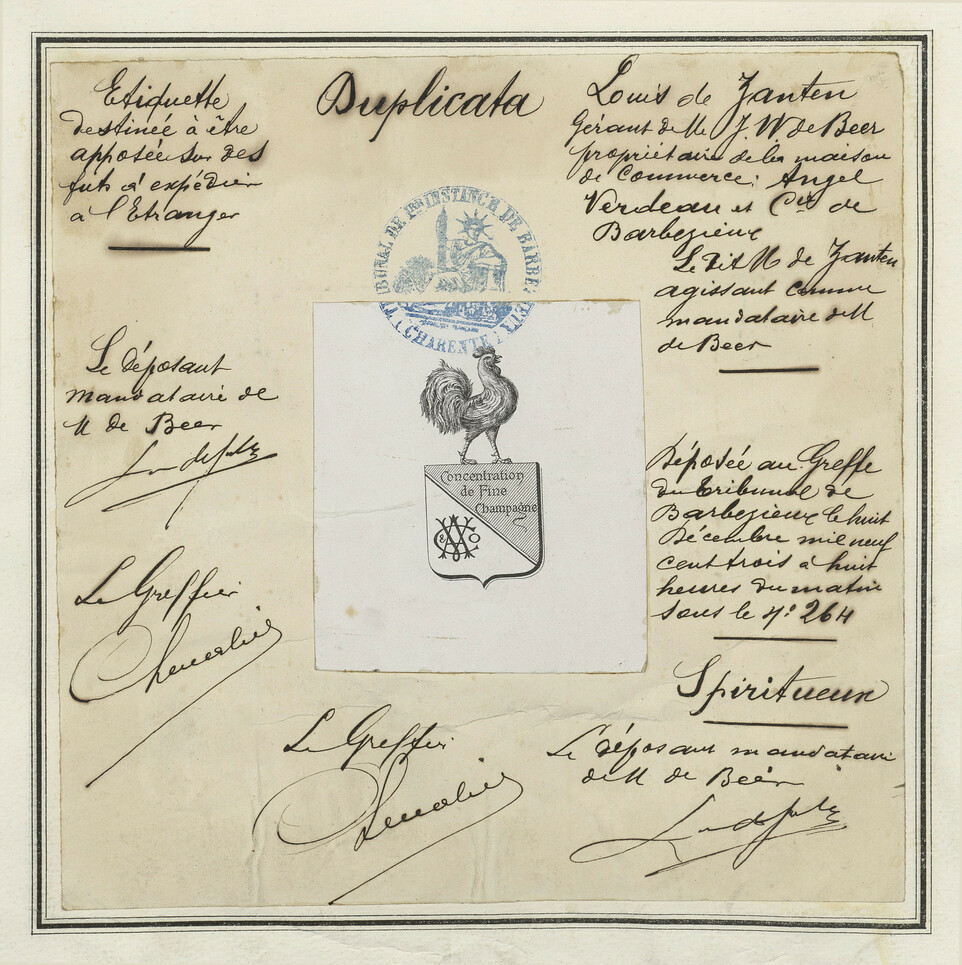 Duplicata
Etiquette
destinée à être
apposée sur des
futs à expédier
à l'Etranger
Louis de Zanten
Gérant de M J. W. de Beer
propriétaire de la maison
de Commerce: Angel
Verdeau et Cie de
Barbezieux
Le dit M de Zanten
agissant comme
mandataire de M
de Beer
TRIBUNAL DE 1re INSTANCE DE BARBEZIEUX
(CHARENTE)
Le déposant
mandataire de
M de Beer
Concentration
de Fine
Champagne
Déposée au Greffe
du tribunal de
Barbezieux le huit
Décembre mil neuf
cent trois à huit
heures du matin
sous le No 264
Le Greffier
Spiritueux
Le Greffier
Le déposant mandataire
de M de Beer